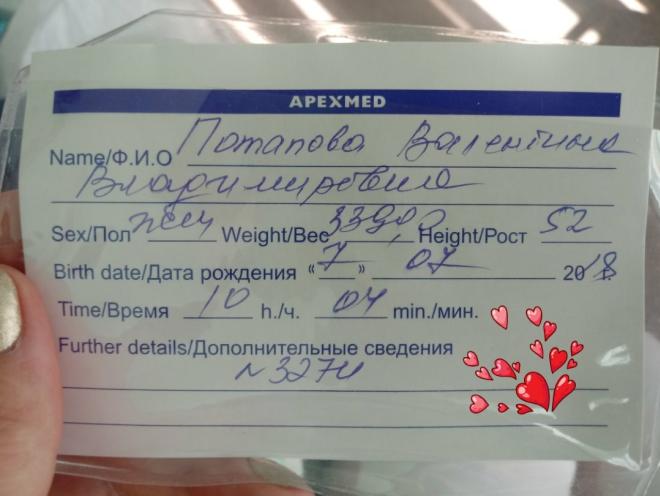 APEXMED
Name/Ф.И.О Потапова Валентина
Владимировна
Sex/Пол жен Weight/Вес 3390 г Height/Рост 52
Birth date/Дата рождения «7» 07 2018
Time/Время 10 h./ч. 04 min./мин.
Further details/Дополнительные сведения
№3274